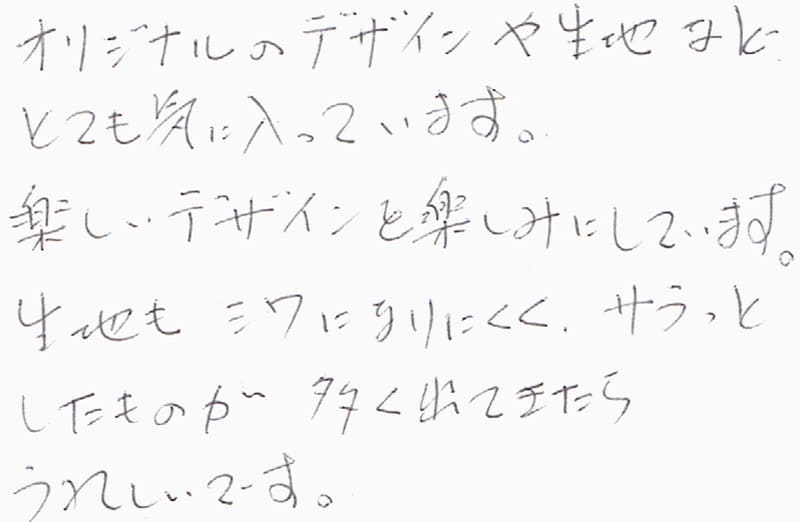 オリジナルのデザインや生地など
とても気に入っています。
楽しいデザインを楽しみにしています。
生地もシワになりにくく、サラっと
したものが多く出てきたら
うれしいです。